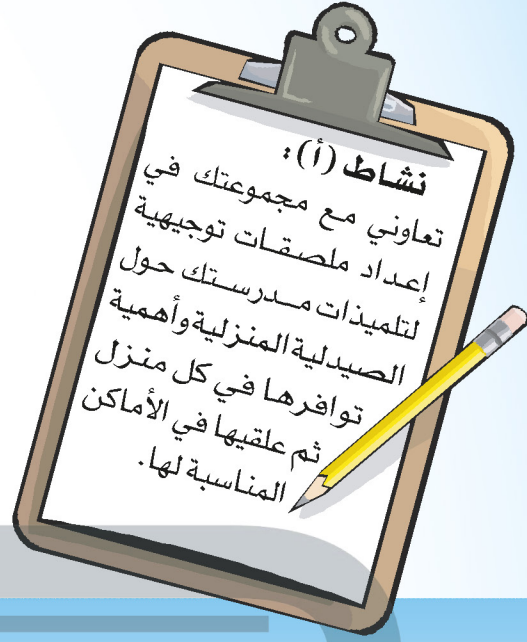 نشاط (أ):
تعاوني مع مجموعتك في
إعداد ملصقات توجيهية
لتلميذات مدرستك حول
الصيدلية المنزلية وأهمية
توافرها في كل منزل
ثم علقيها في الأماكن
المناسبة لها.